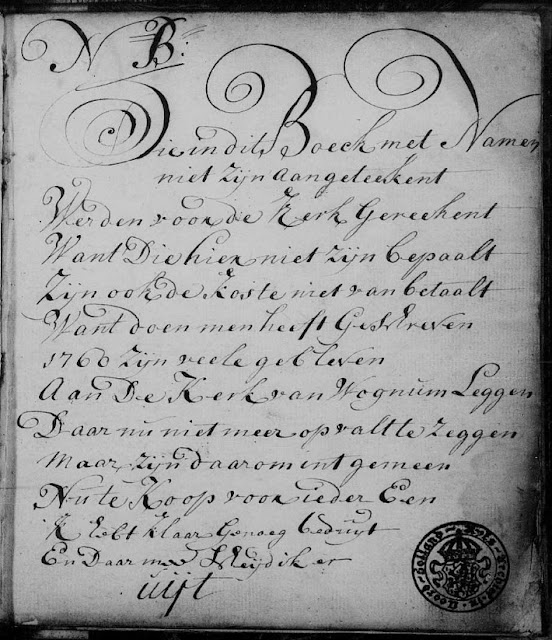 N B:
Die in dit Boeck met Namen
niet zijn aangeteekent
Werden voor de Kerk Gereekent
Want Die hier niet zijn bepaalt
Zijn ook de koste niet van betaalt
Want doen men heeft Geschreven
1760 zijn veele gebleven
Aan De Kerk van Wognum Leggen
Daar nu niet meer op valt te zeggen
maar zijn daarom int gemeen
Nu te Koop voor ieder Een
K Hebt klaar Genoeg beduyt
En Daar mee Scheijd ik er
uijt